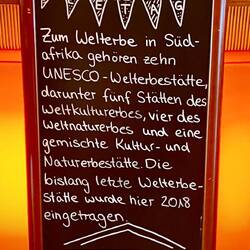 Zum Welterbe in Süd-
afrika gehören zehn
UNESCO-Welterbestätte,
darunter fünf Stätten des
Weltkulturerbes, vier des
Weltnaturerbes und eine
gemischte Kultur- und
Naturerbestätte. Die
bislang letzte Welterbe-
stätte wurde hier 2018
eingetragen.